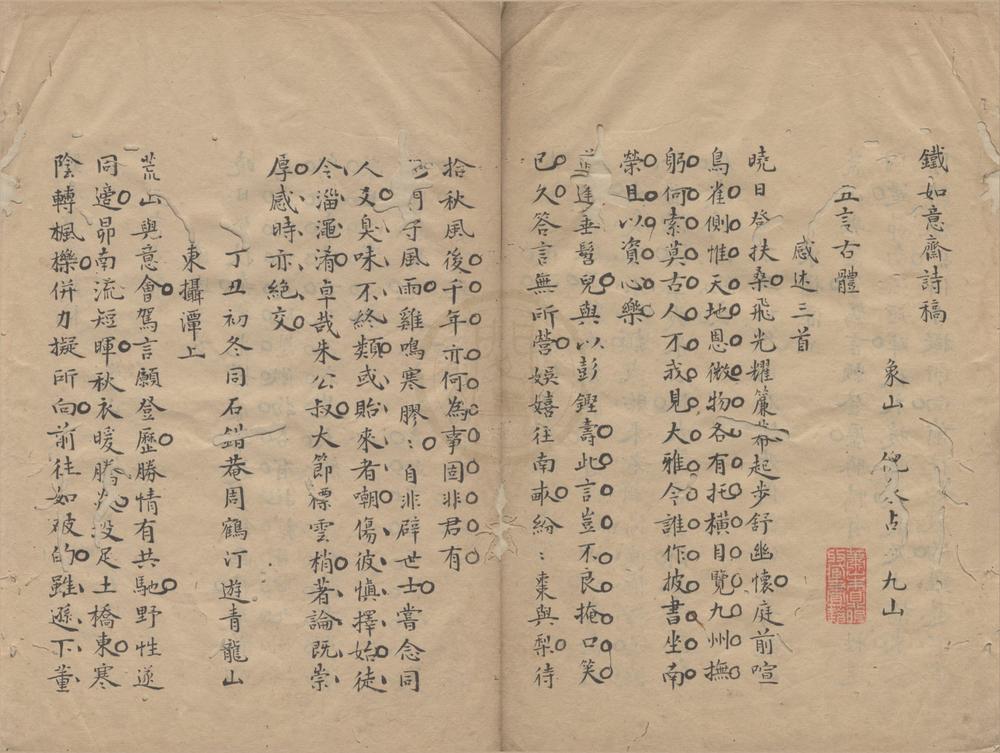 鐵如意齋詩稿
象山 倪 占 九山
五言古體
感述三首
曉日發扶桑飛光耀簾幕起步舒幽懷庭前喧
鳥雀側惟天地恩微物各有托橫目覽九州撫
躬何索莫古人不我見大雅今誰作披書坐南
榮且以資心樂
逢垂髫兒與以彭鏗壽此言豈不良掩口笑
已久答言無所營娛嬉在南畝紛:棗與梨待
拾秋風後千年亦何為事固非君有
子風雨雞鳴寒膠:自非辟世士嘗念同
人又臭味不終類或貽來者嘲傷彼慎擇始徒
令淄澠淆卓哉朱公叔大節標雲梢著論既崇
厚感時亦絕交
丁丑初冬同石錯菴周鶴汀遊青龍山
東攝潭上
荒山與意會駕言願登歷勝情有共馳野性遂
同邊昴南流短暉秋衣暖勝炎投足土橋東寒
陰轉楓櫟併力擬所向前往如被的雖遜下董